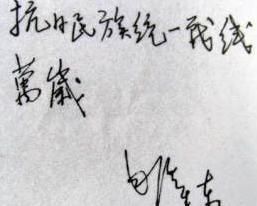 抗日民族统一战线
萬歲